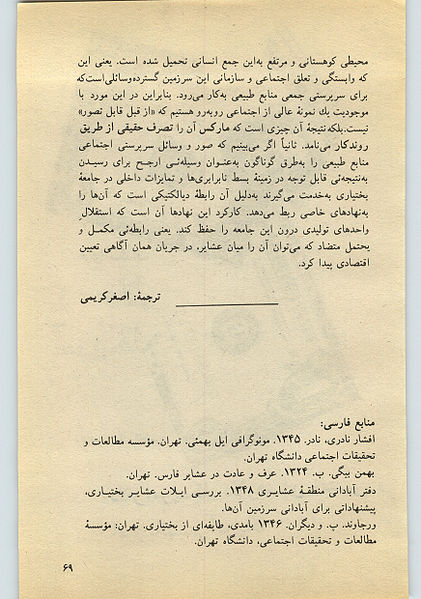 محیطی کوهستانی و مرتفع به‌این جمع انسانی تحمیل شده است. یعنی این
که وابستگی و تعلق اجتماعی و سازمانی این سرزمین گسترده‌وسائلی‌است‌که
برای سرپرستی جمعی منابع طبیعی به‌کار می‌رود. بنابراین در این مورد با
موجودیت یك نمونهٔ عالی از اجتماعی روبه‌رو هستیم که «از قبل قابل تصور»
نیست.بلکه‌نتیجهٔ آن چیزی است که مارکس آن را تصرف حقیقی از طریق
روندکار می‌نامد. ثانیاً اگر می‌بینیم که صور و وسائل سرپرستی اجتماعی
منابع طبیعی را به‌طرق گوناگون به‌عنوان وسیله‌ئی ارجح برای رسیدن
به‌نتیجه‌ئی قابل توجه در زمینهٔ بسط نابرابری‌ها و تمایزات داخلی در جامعهٔ
بختیاری به‌خدمت می‌گیرند به‌دلیل آن رابطهٔ دیالکتیکی است که آن‌ها را
به‌نهادهای خاصی ربط می‌دهد. کارکرد این نهادها آن است که استقلال
واحدهای تولیدی درون این جامعه را حفظ کند. یعنی رابطه‌ئی مکمل و
یحتمل متضاد که می‌توان آن را میان عشایر، در جریان همان آگاهی تعیین
اقتصادی پیدا کرد.
ترجمهٔ: اصغرکریمی
منابع فارسی:
افشار نادری، نادر. ۱۳۴۵. مونوگرافی ایل بهمئی. تهران. مؤسسه مطالعات و
تحقیقات اجتماعی دانشگاه تهران.
بهمن بیگی. ب. ۱۳۲۴. عرف و عادت در عشایر فارس. تهران.
دفتر آبادانی منطقهٔ عشایری ۱۳۴۸. بررسی ایلات عشایر بختیاری،
پیشنهاداتی برای آبادانی سرزمین آن‌ها.
ورجاوند. پ. و دیگران. ۱۳۴۶ بامدی، طایفه‌ای از بختیاری. تهران: مؤسسهٔ
مطالعات و تحقیقات اجتماعی، دانشگاه تهران.
۶۹